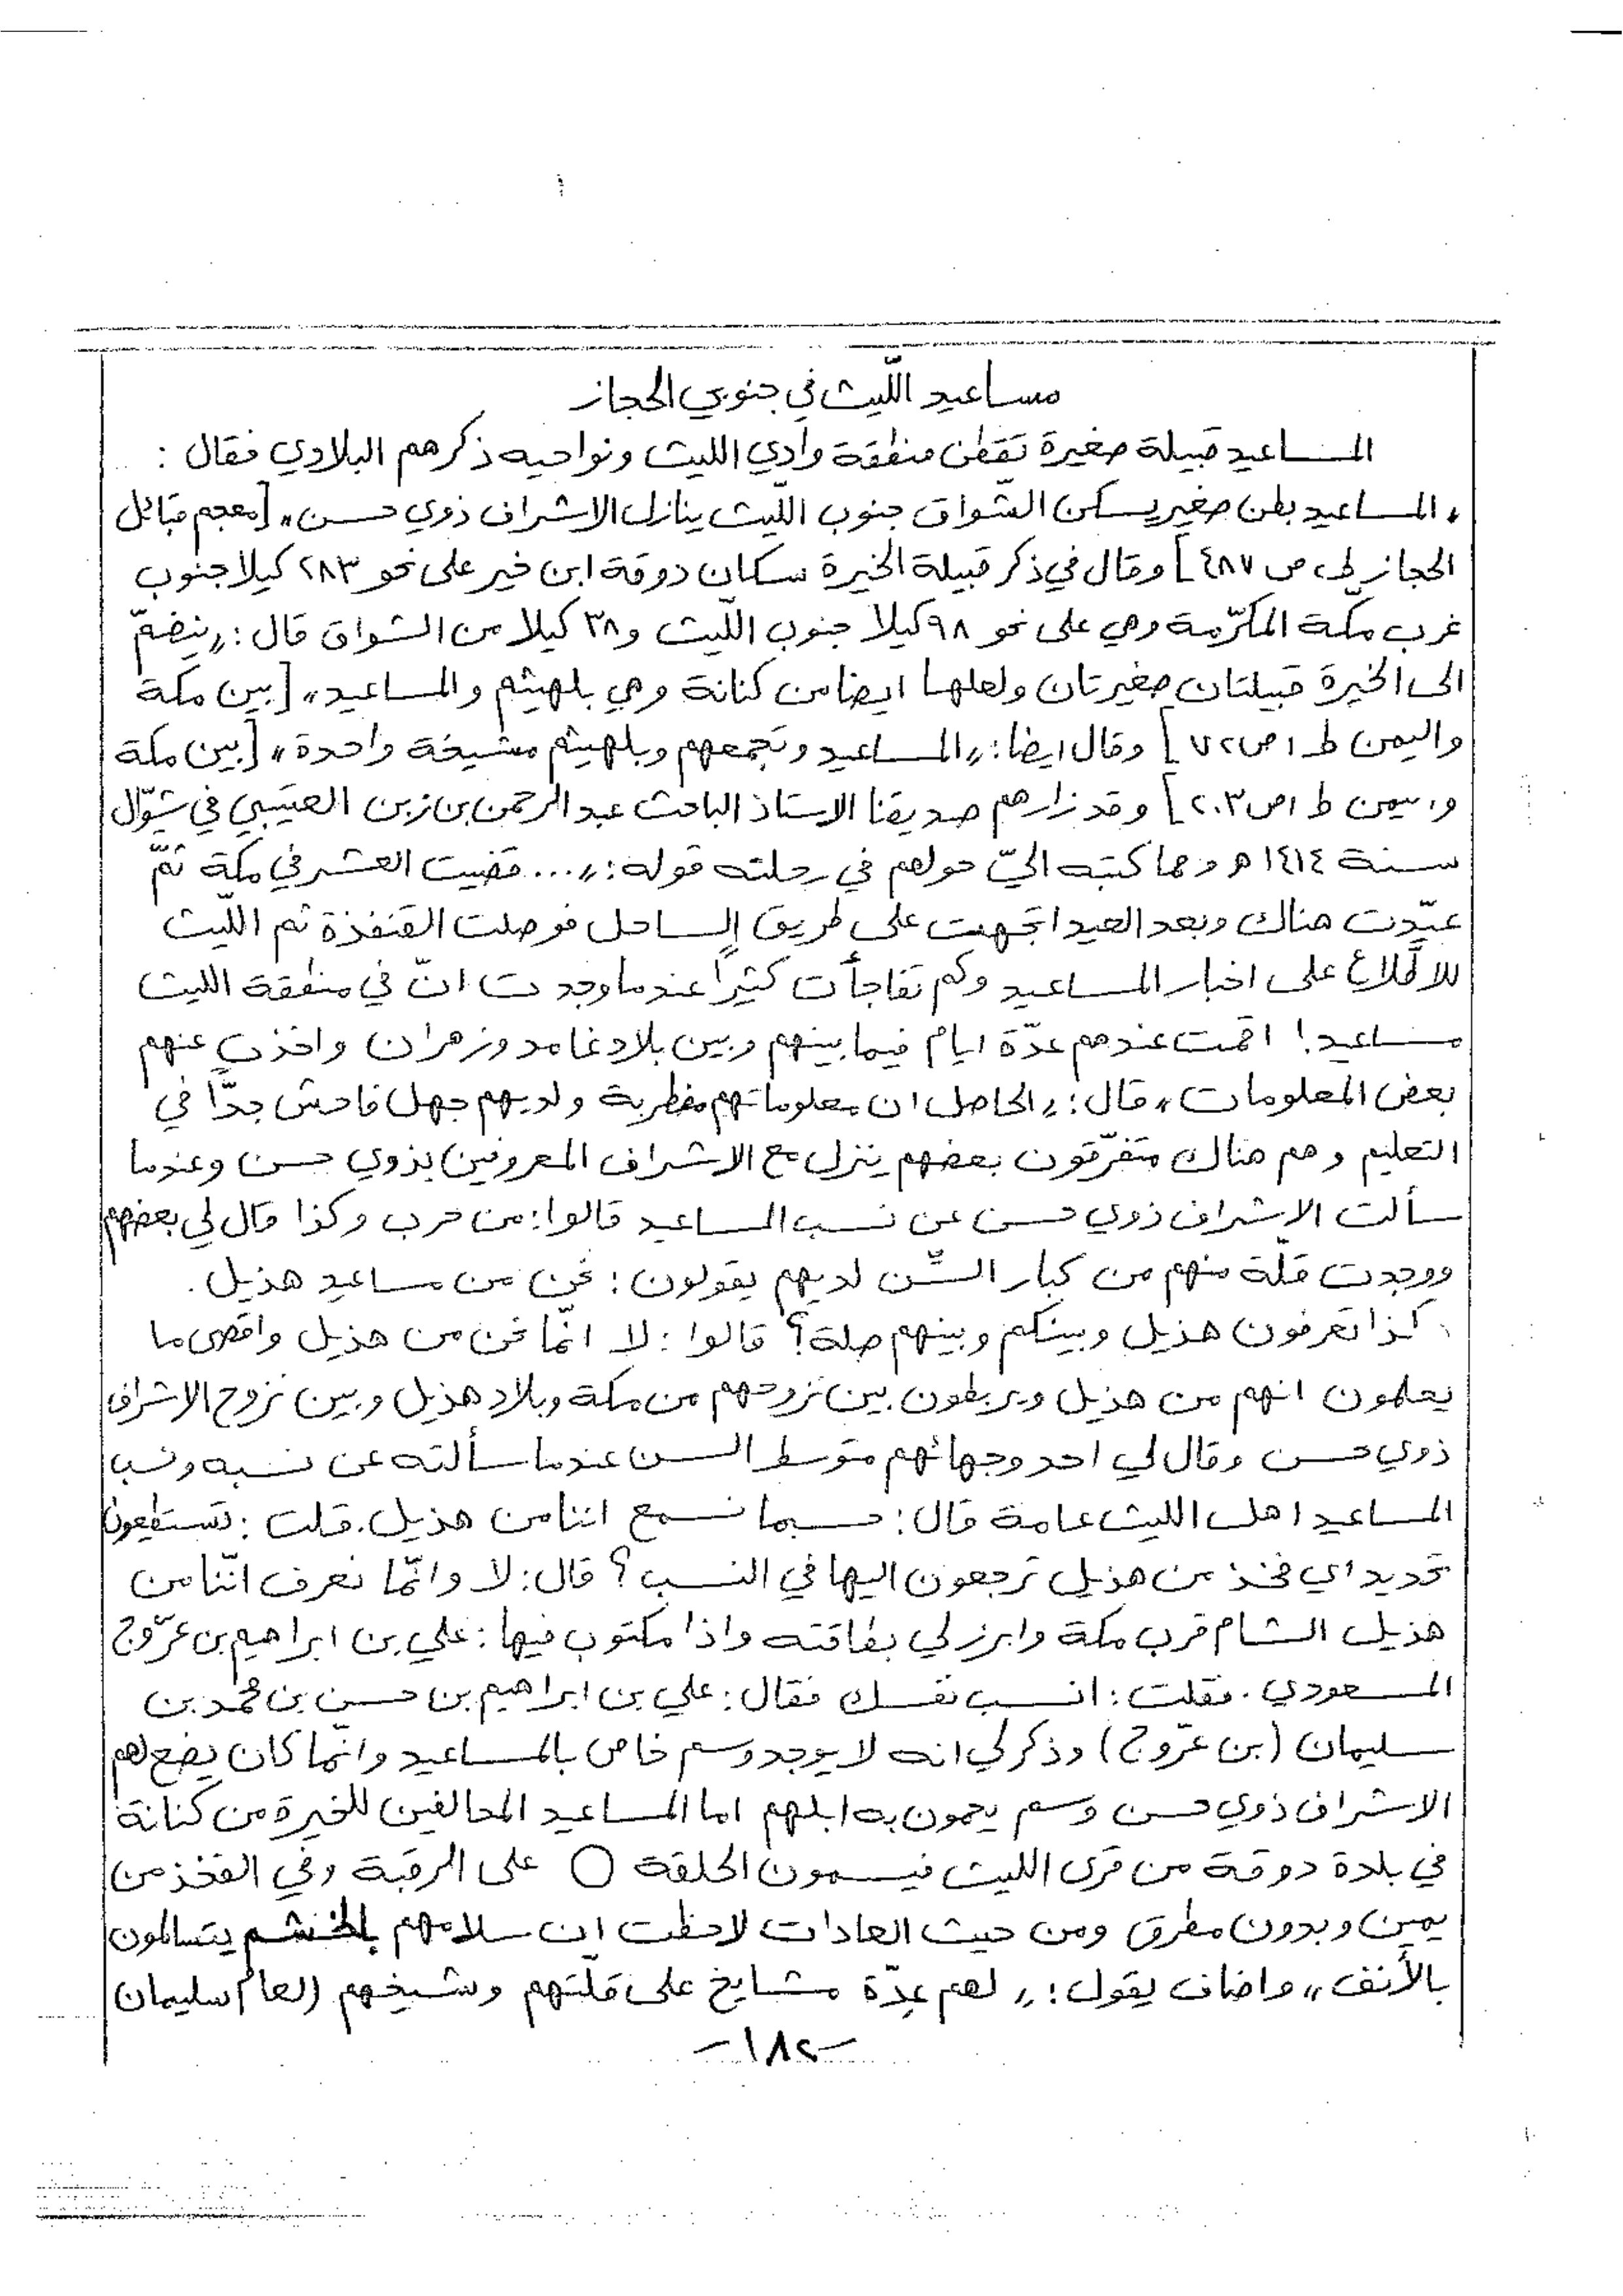 مساعيد اللّيث في جنوبي الحجاز
المساعيد قبيلة صغيرة تقطن منطقة وادي الليث ونواحيه ذكرهم البلادي فقال :
"المساعيد بطن صغير يسكن الشواق جنوب اللّيث ينازل الاشراف ذوي حسن" [معجم قبائل
الحجاز ط١ ص ٤٨٧] وقال في ذكر قبيلة الخيرة سكان دوقة ابن خير على نحو ٢٨٣ كيلا جنوب
غرب مكّة المكرّمة وهي على نحو ٩٨ كيلا جنوب اللّيث و٣٨ كيلا من الشواق قال: "ينضمّ
الى الخيرة قبيلتان صغيرتان ولعلهما ايضا من كنانة وهي بلهيثم والمساعيد" [بين مكة
واليمن ط ١ ص ٧٢] وقال ايضا: "المساعيد وتجمعهم وبلهيثم مشيخة واحدة" [بين مكة
واليمن ط ١ ص ٢٠٣] وقد زارهم صديقنا الاستاذ الباحث عبد الرحمن بن زبن العتيبي في شوّال
سنة ١٤١٤ هـ ومما كتبه اليّ حولهم في رحلته قوله: "... قضيت العشر في مكة ثمّ
عيّدت هناك وبعد العيد اتجهت على طريق الساحل فوصلت القنفذة ثم اللّيث
للاطلاع على اخبار المساعيد وكم تفاجأت كثيراً عندما وجدت انّ في منطقة الليث
مساعيد! اقمت عندهم عدّة ايام فيما بينهم وبين بلاد غامد وزهران واخذت عنهم
بعض المعلومات" قال: "الحاصل ان معلوماتهم مضطربة ولديهم جهل فاحش جدّاً في
التعليم وهم هناك متفرّقون بعضهم ينزل مع الاشراف المعروفين بذوي حسن وعندما
سألت الاشراف ذوي حسن عن نسب المساعيد قالوا: من حرب وكذا قال لي بعضهم
ووجدت قلّة منهم من كبار السّن لديهم يقولون : نحن من مساعيد هذيل .
كذا تعرفون هذيل وبينكم وبينهم صلة؟ قالوا : لا انّما نحن من هذيل واقصى ما
يعلمون انهم من هذيل ويربطون بين نزوحهم من مكة وبلاد هذيل وبين نزوح الاشراف
ذوي حسن وقال لي احد وجهائهم متوسط السن عندما سألته عن نسبه ونسب
المساعيد اهل الليث عامة قال: حسبما نسمع اننا من هذيل. قلت : تستطيعون
تحديد اي فخذ من هذيل ترجعون اليها في النسب؟ قال: لا وانّما نعرف انّنا من
هذيل الشام قرب مكة وابرز لي بطاقته واذا مكتوب فيها: علي بن ابراهيم بن عرّوج
المسعودي . فقلت : انسب نفسك فقال: علي بن ابراهيم بن حسن بن محمد بن
سليمان (بن عرّوج) وذكر لي انه لا يوجد وسم خاص بالمساعيد وانّما كان يضع لهم
الاشراف ذوي حسن وسم يحمون به ابلهم اما المساعيد المحالفين للخيرة من كنانة
في بلدة دوقة من قرى الليث فيسمون الحلقة O على الرقبة وفي الفخذ من
يمين وبدون مطرق ومن حيث العادات لاحظت ان سلامهم بالخشم يتسالمون
بالأنف" واضاف يقول: "لهم عدّة مشايخ على قلّتهم وشيخهم العام سليمان
-١٨٢-